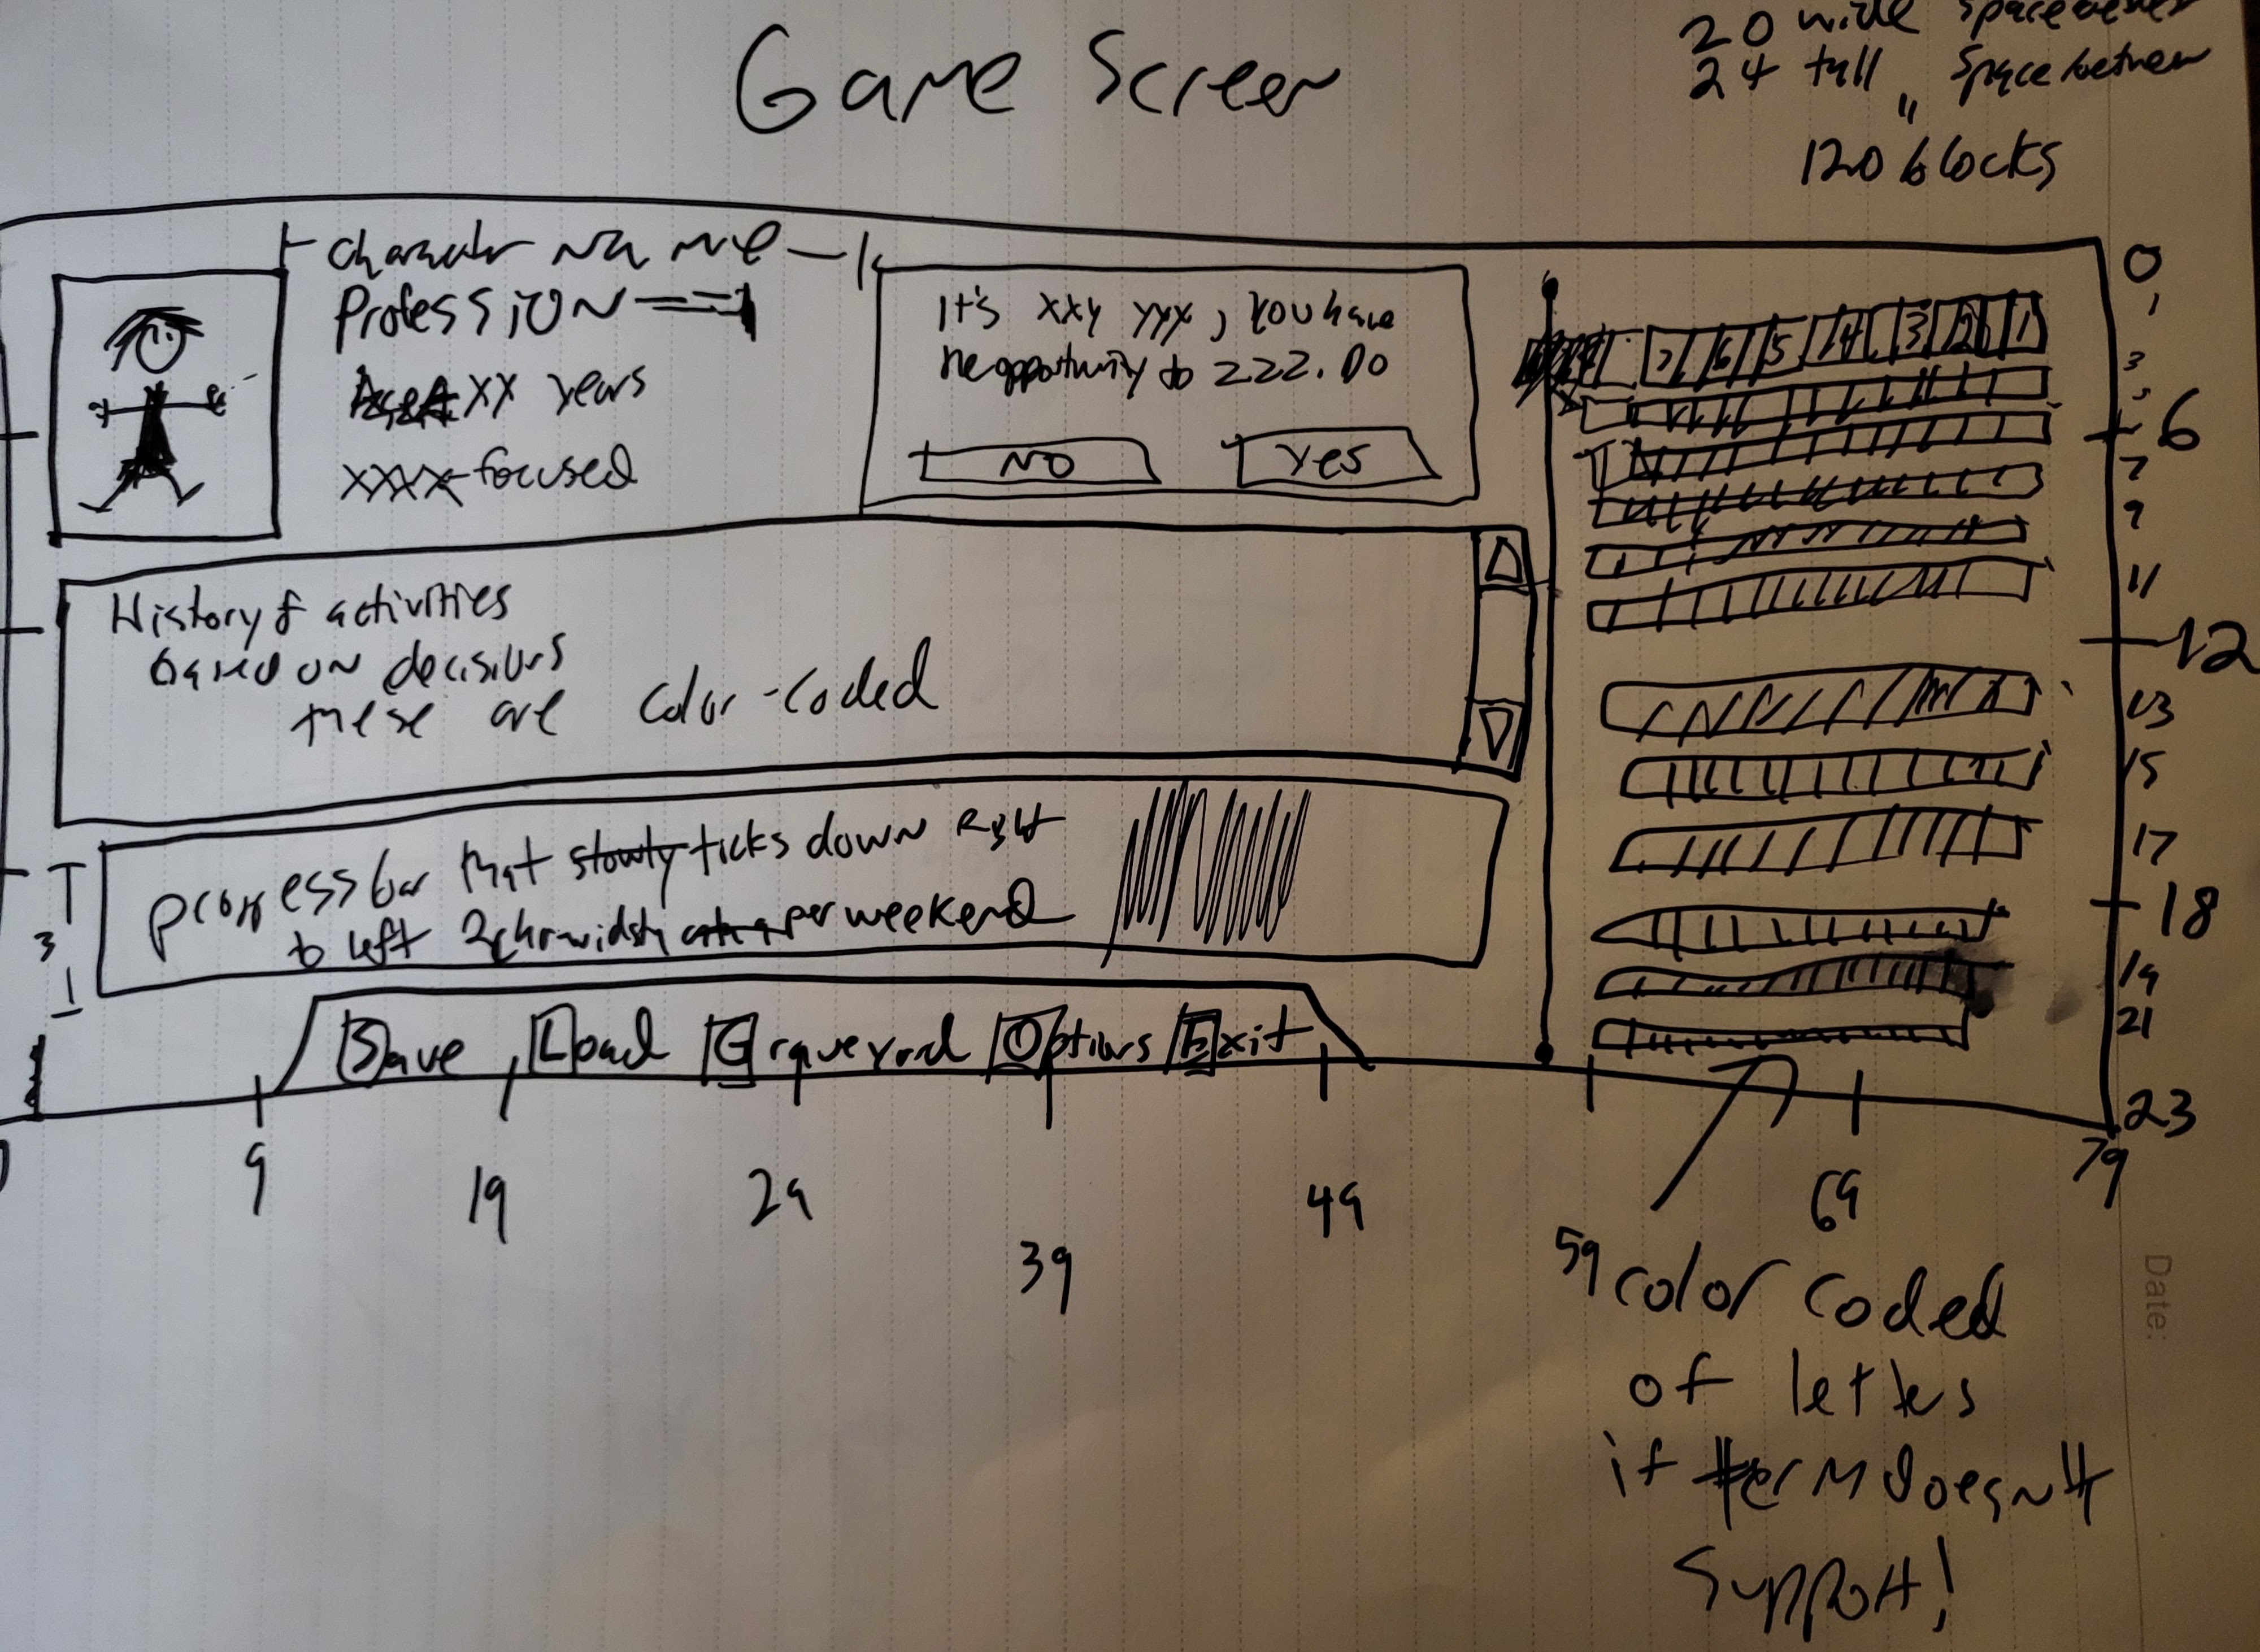 Game Screen
20 wide space between
24 tall " space between
120 blocks
Character name
Profession
XX years
xxxx focused
It's xxy yyy, you have
the opportunity to zzz. Do
NO
Yes
7 6 5 4 3 2 1
History of activities
based on decisions
these are color-coded
progress bar that slowly ticks down right
to left 2 chr width per weekend
3
Save Load Graveyard Options Exit
0
1
3
5
6
7
9
11
12
13
15
17
18
19
21
23
9 19 29 39 49 59 69 79
color coded
of letters
if term doesn't
support!
Date: